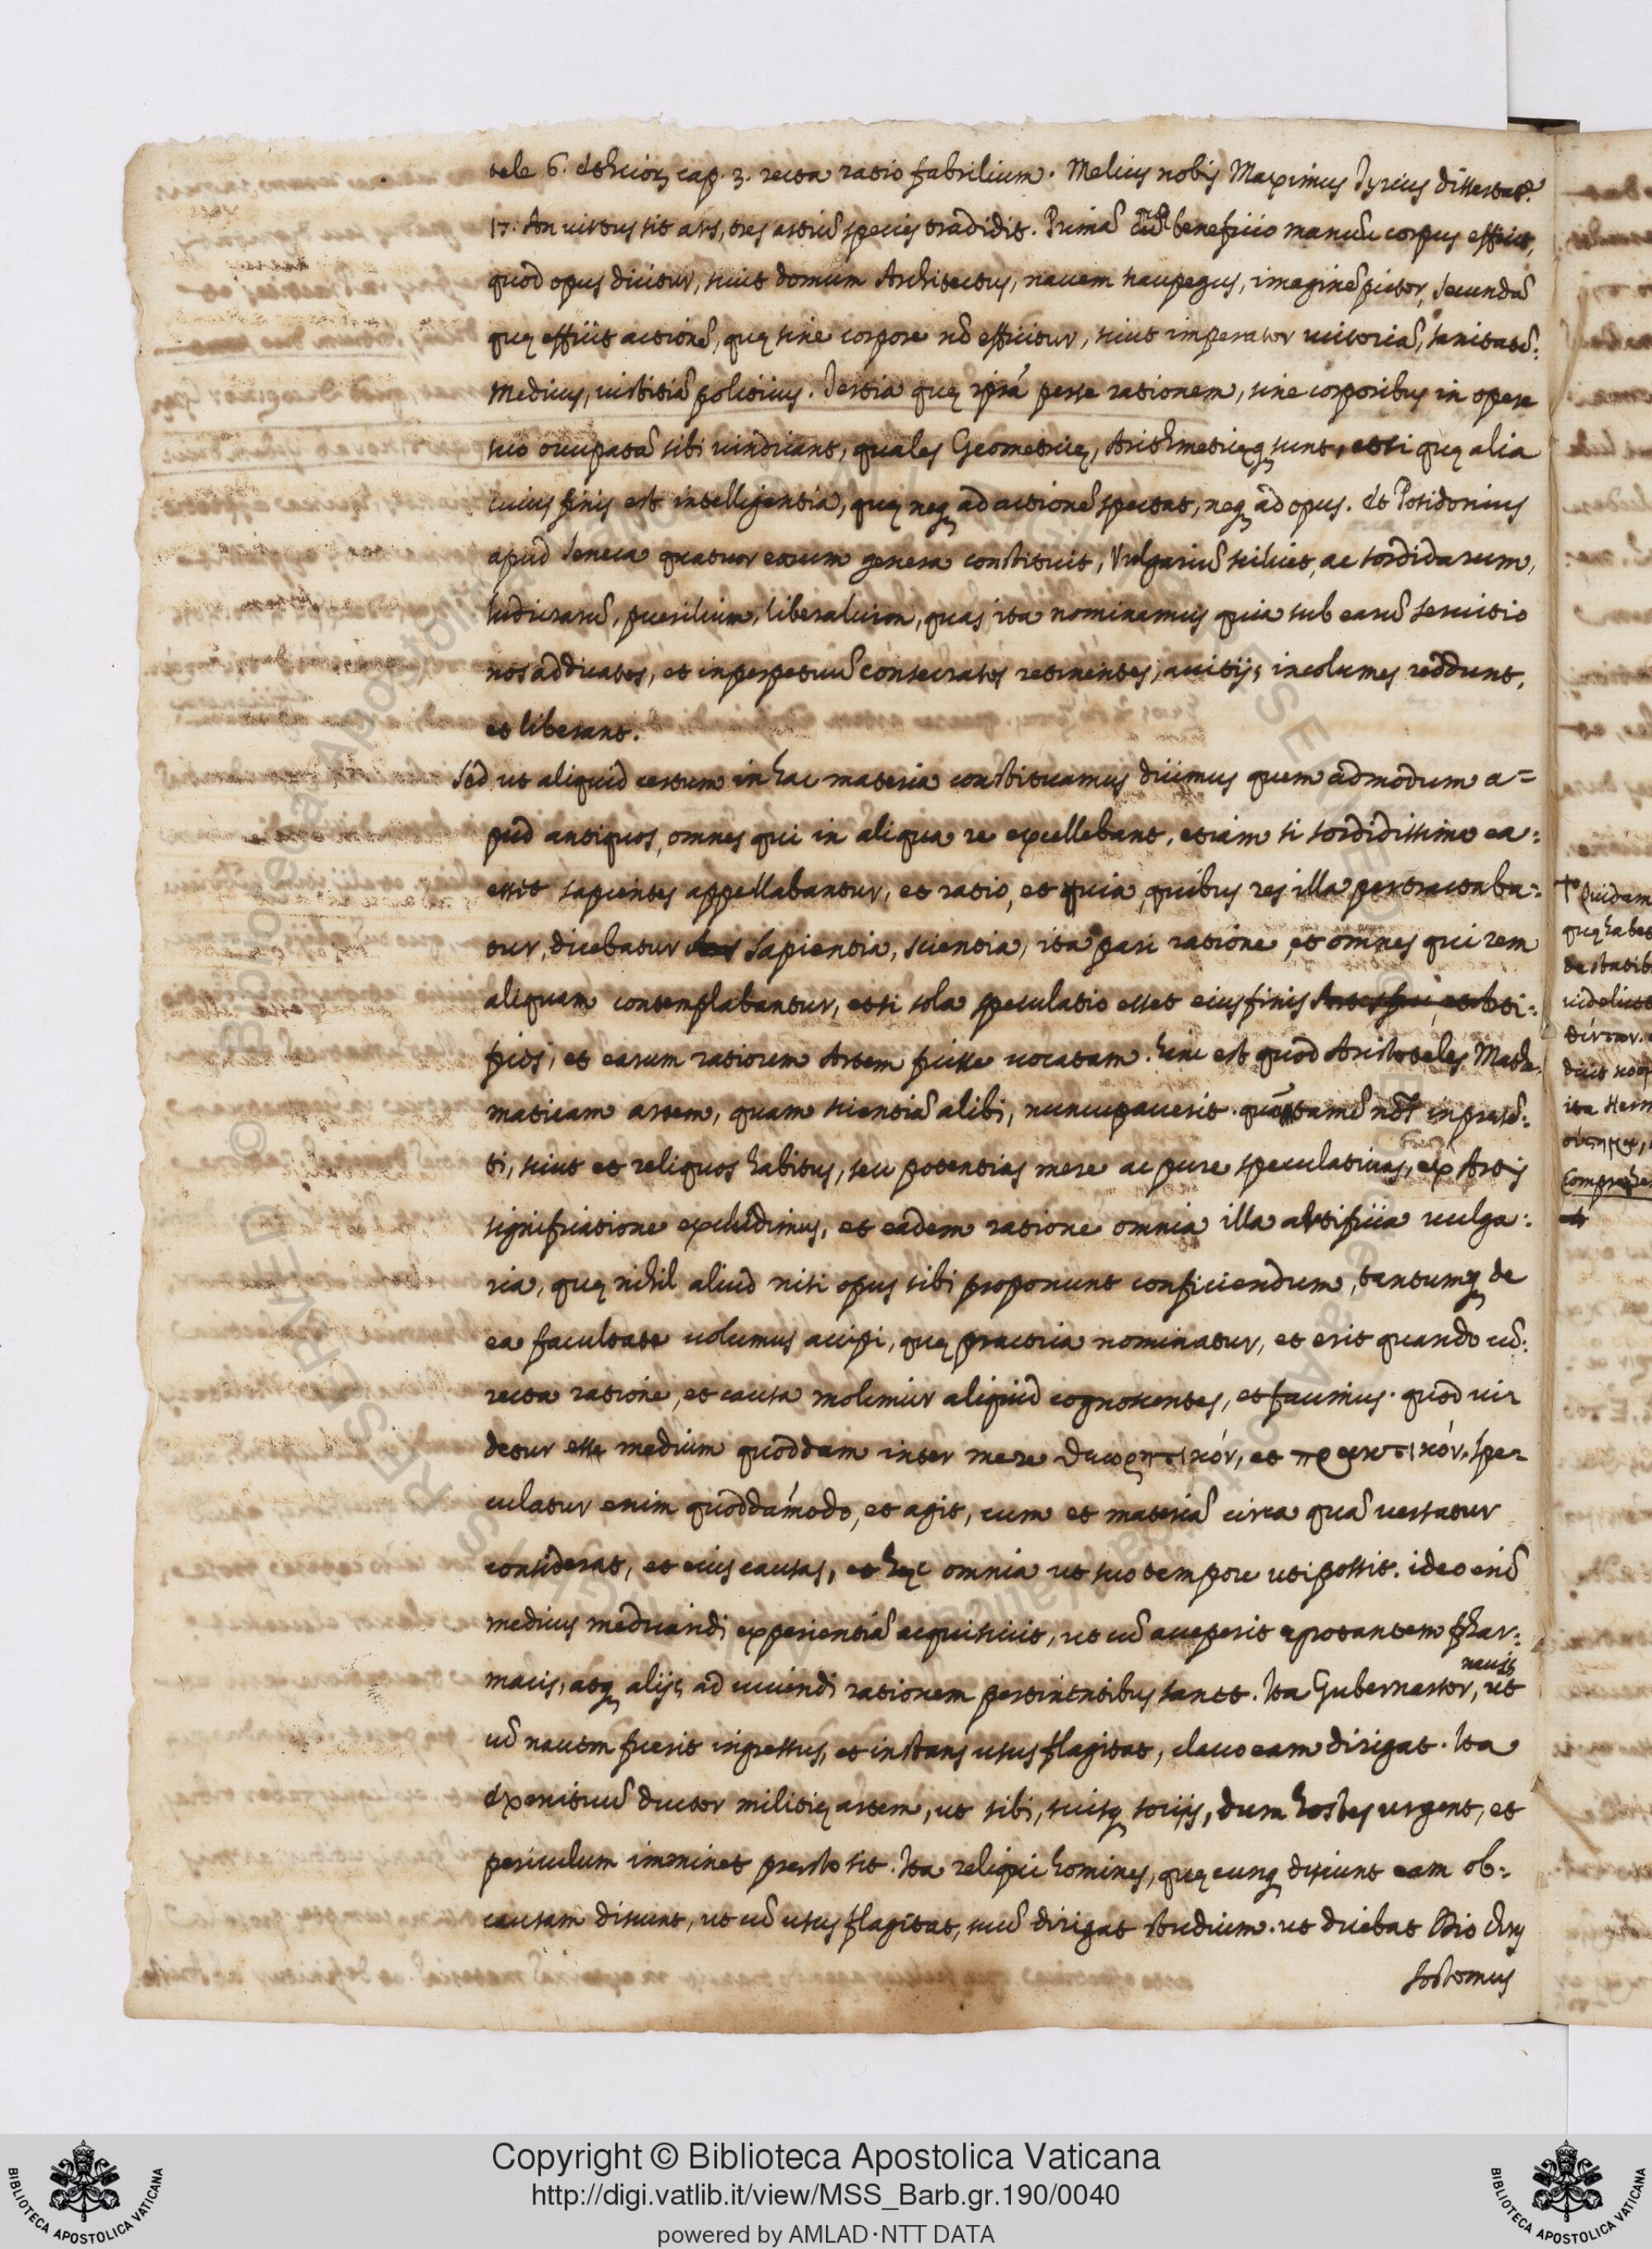 tele 6. Ethicorꝫ cap. 3. recta ratio fabrilium. Melius nobis Maximus Tyrius dissertat.
17. An virtus sit ars, tres artiũ species tradidit. Primã beneficio manuũ corpus efficit,
quod opus dicitur, sicut domum Architectus, navem naupegus, imaginẽ pictor, Secundã
quę efficit actionẽ, quę sine corpore nõ efficitur, sicut imperator victoriã, sanitatẽ:
Medicus, iustitiã politicus. Tertia quę ipsã per se rationem, sine corporibus in opere
suo occupatã sibi vindicant, quales Geometricę, Arithmeticęqꝫ sunt, et si quę alia
cuius finis est intelligentia, quę neqꝫ ad actionẽ spectat, neqꝫ ad opus. Et Posidonius
apud Seneca quatuor earum genera constituit, Vulgariũ scilicet, ac sordidarum,
ludicrarũ, puerilium, liberalium, quas ita nominamus quia sub earũ servitio
nos addicatos, et in perpetuũ consecratos retinentes, a vitijs incolumes reddunt,
et liberant.
Sed ut aliquid certum in hac materia constituamus dicimus quem admodum a=
pud antiquos, omnes qui in aliqua re excellebant, etiam si sordidissima ea:
esset sapientes appellabantur, et ratio, et quia, quibus res illa pertractaba:
tur, dicebatur Sapientia, scientia, ita pari ratione, et omnes qui rem
aliquam contemplabantur, et si sola speculatio esset eius finis Arti:
fices, et earum rationem Artem fuisse vocatam. hinc est quod Aristoteles Mathe.
maticam artem, quam scientiã alibi, nuncupaverit. tamẽ nos in presẽ:
ti, sicut et reliquos habitus, seu potentias mere ac pure speculativas, ex Artis
significatione excludimus, et eadem ratione omnia illa artificia vulga:
ria, quę nihil aliud nisi opus sibi proponunt conficiendum, tantumqꝫ de
ea facultate volumus accipi, quę practica nominatur, et erit quando cũ:
recta ratione, et causa molimur aliquid cognoscentes, et facimus. quod vi-
detur esse medium quoddam inter mere θεωρητικόν, et πρακτικόν. spe-
culatur enim quoddamodo, et agit, cum et materiã circa quã versatur
consideret, et eius causas, et hęc omnia ut suo tempore uti possit. ideo enĩ
medicus medicandi experientiã acquisivit, ut cũ acceperit egrotantem phar:
macis, atqꝫ alijs ad vivendi rationem pertinentibus sanet. Ita Gubernator, ut
navis
cũ navem fuerit ingressus, et instans usus flagitat, clavo eam dirigat. Ita
Exercituũ ductor militię artem, ut sibi, suisqꝫ socijs, dum hostes urgent, et
periculum imminet presto sit. Ita reliqui homines, quęcunqꝫ discunt eam ob:
causam discunt, ut cũ usus flagitat, suũ dirigat studium. ut dicebat Dio Chry
sostomus
† Quidam
quę habet
videlicet
ita Herm
Comprehe
Copyright © Biblioteca Apostolica Vaticana
http://digi.vatlib.it/view/MSS_Barb.gr.190/0040
powered by AMLAD·NTT DATA
BIBLIOTECA APOSTOLICA VATICANA
BIBLIOTECA APOSTOLICA VATICANA